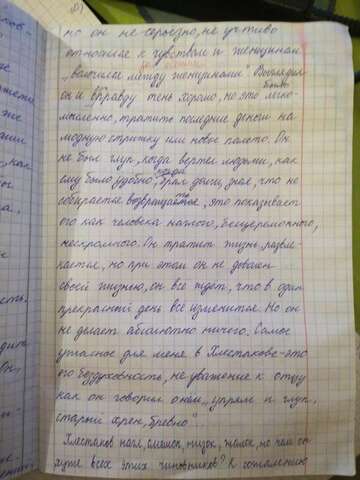 но он не серьёзно, не учтиво
относился к чувствам и женщинам
„волочился между женщинами". Выглядел
он и вправду очень хорошо, но это легко-
мысленно, тратить последние деньги на
модную стрижку или новое пальто. Он
не был глуп, когда вертел людьми, как
ему было удобно, когда брал долги, зная, что не
собирается возвращать, это показывает
его как человека наглого, бесцеремонного,
нескромного. Он тратит жизнь, развле-
кается, но при этом он не доволен
своей жизнью, он всё ждёт, что в один
прекрасный день всё изменится. Но он
не делает абсолютно ничего. Самое
ужасное для меня в Хлестакове - это
его бездуховность, не уважение к отцу
как он говорил о нём „упрям и глуп,
старый хрен, бревно"...
Хлестаков нагл, смешон, низок, жалок, но чем он
хуже всех этих чиновников? К сожалению